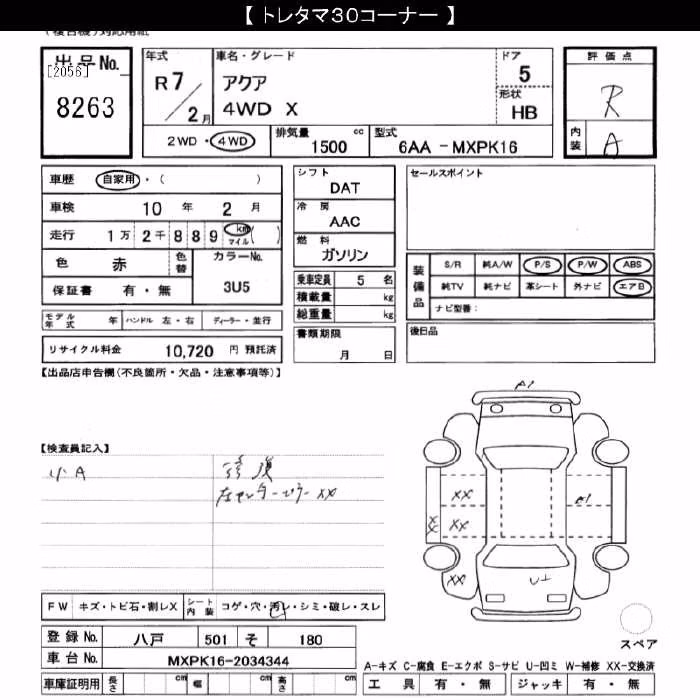 【 トレタマ30コーナー 】
(複合機)対応用紙
出品No.
[2056]
8263
年式
R 7 / 2 月
車名・グレード
アクア
4WD X
ドア
5
形状
HB
評価点
R
内装
A
2WD・4WD
排気量 1500 cc
型式 6AA -MXPK16
車歴 自家用・( )
車検 10 年 2 月
走行 1万 2千 8 8 9 km マイル ( )
色 赤 色替
カラーNo.
3U5
保証書 有・無
モデル年式 年 ハンドル 左・右 ディーラー・並行
リサイクル料金 10,720 円 預託済
シフト
DAT
冷房
AAC
燃料
ガソリン
乗車定員 5 名
積載量 kg
総重量 kg
書類期限
月 日
セールスポイント
装備品
S/R 純A/W P/S P/W ABS
純TV 純ナビ 革シート 外ナビ エアB
ナビ型番:
後日品
【出品店申告欄(不良箇所・欠品・注意事項等)】
【検査員記入】
小A
修復
左センターピラーXX
A1
XX
A1
XX
XX
XX
U1
スペア
FW キズ・トビ石・割レX シート内装 コゲ・穴・汚レ・シミ・破レ・スレ
登録No. 八戸 501 そ 180
車台No. MXPK16-2034344
車庫証明用 長さ cm 幅 cm 高さ cm
A-キズ C-腐食 E-エクボ S-サビ U-凹ミ W-補修 XX-交換済
工具 有・無 ジャッキ 有・無